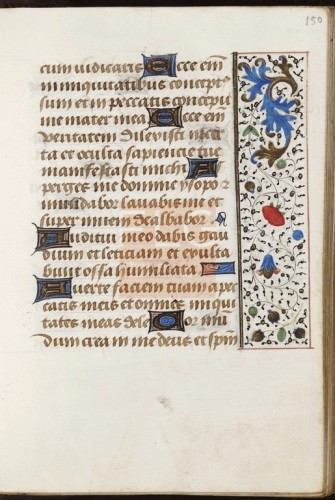 150
cum iudicaris Ecce em̄
in iniquitatibus conceptꝰ
sum et in peccatis concepit
me mater mea Ecce em̄
veritatem dilexisti incer
ta et occulta sapiencie tue
manifestasti michi A
perges me domine ysopo ꝛ
mundabor lavabis me et
super nivem dealbabor
Auditui meo dabis gau
dium et leticiam et exulta
bunt ossa humiliata
Averte faciem tuam a pec
catis meis et omnes iniqui
tates meas dele Cor mū
dum crea in me deus et spm̄